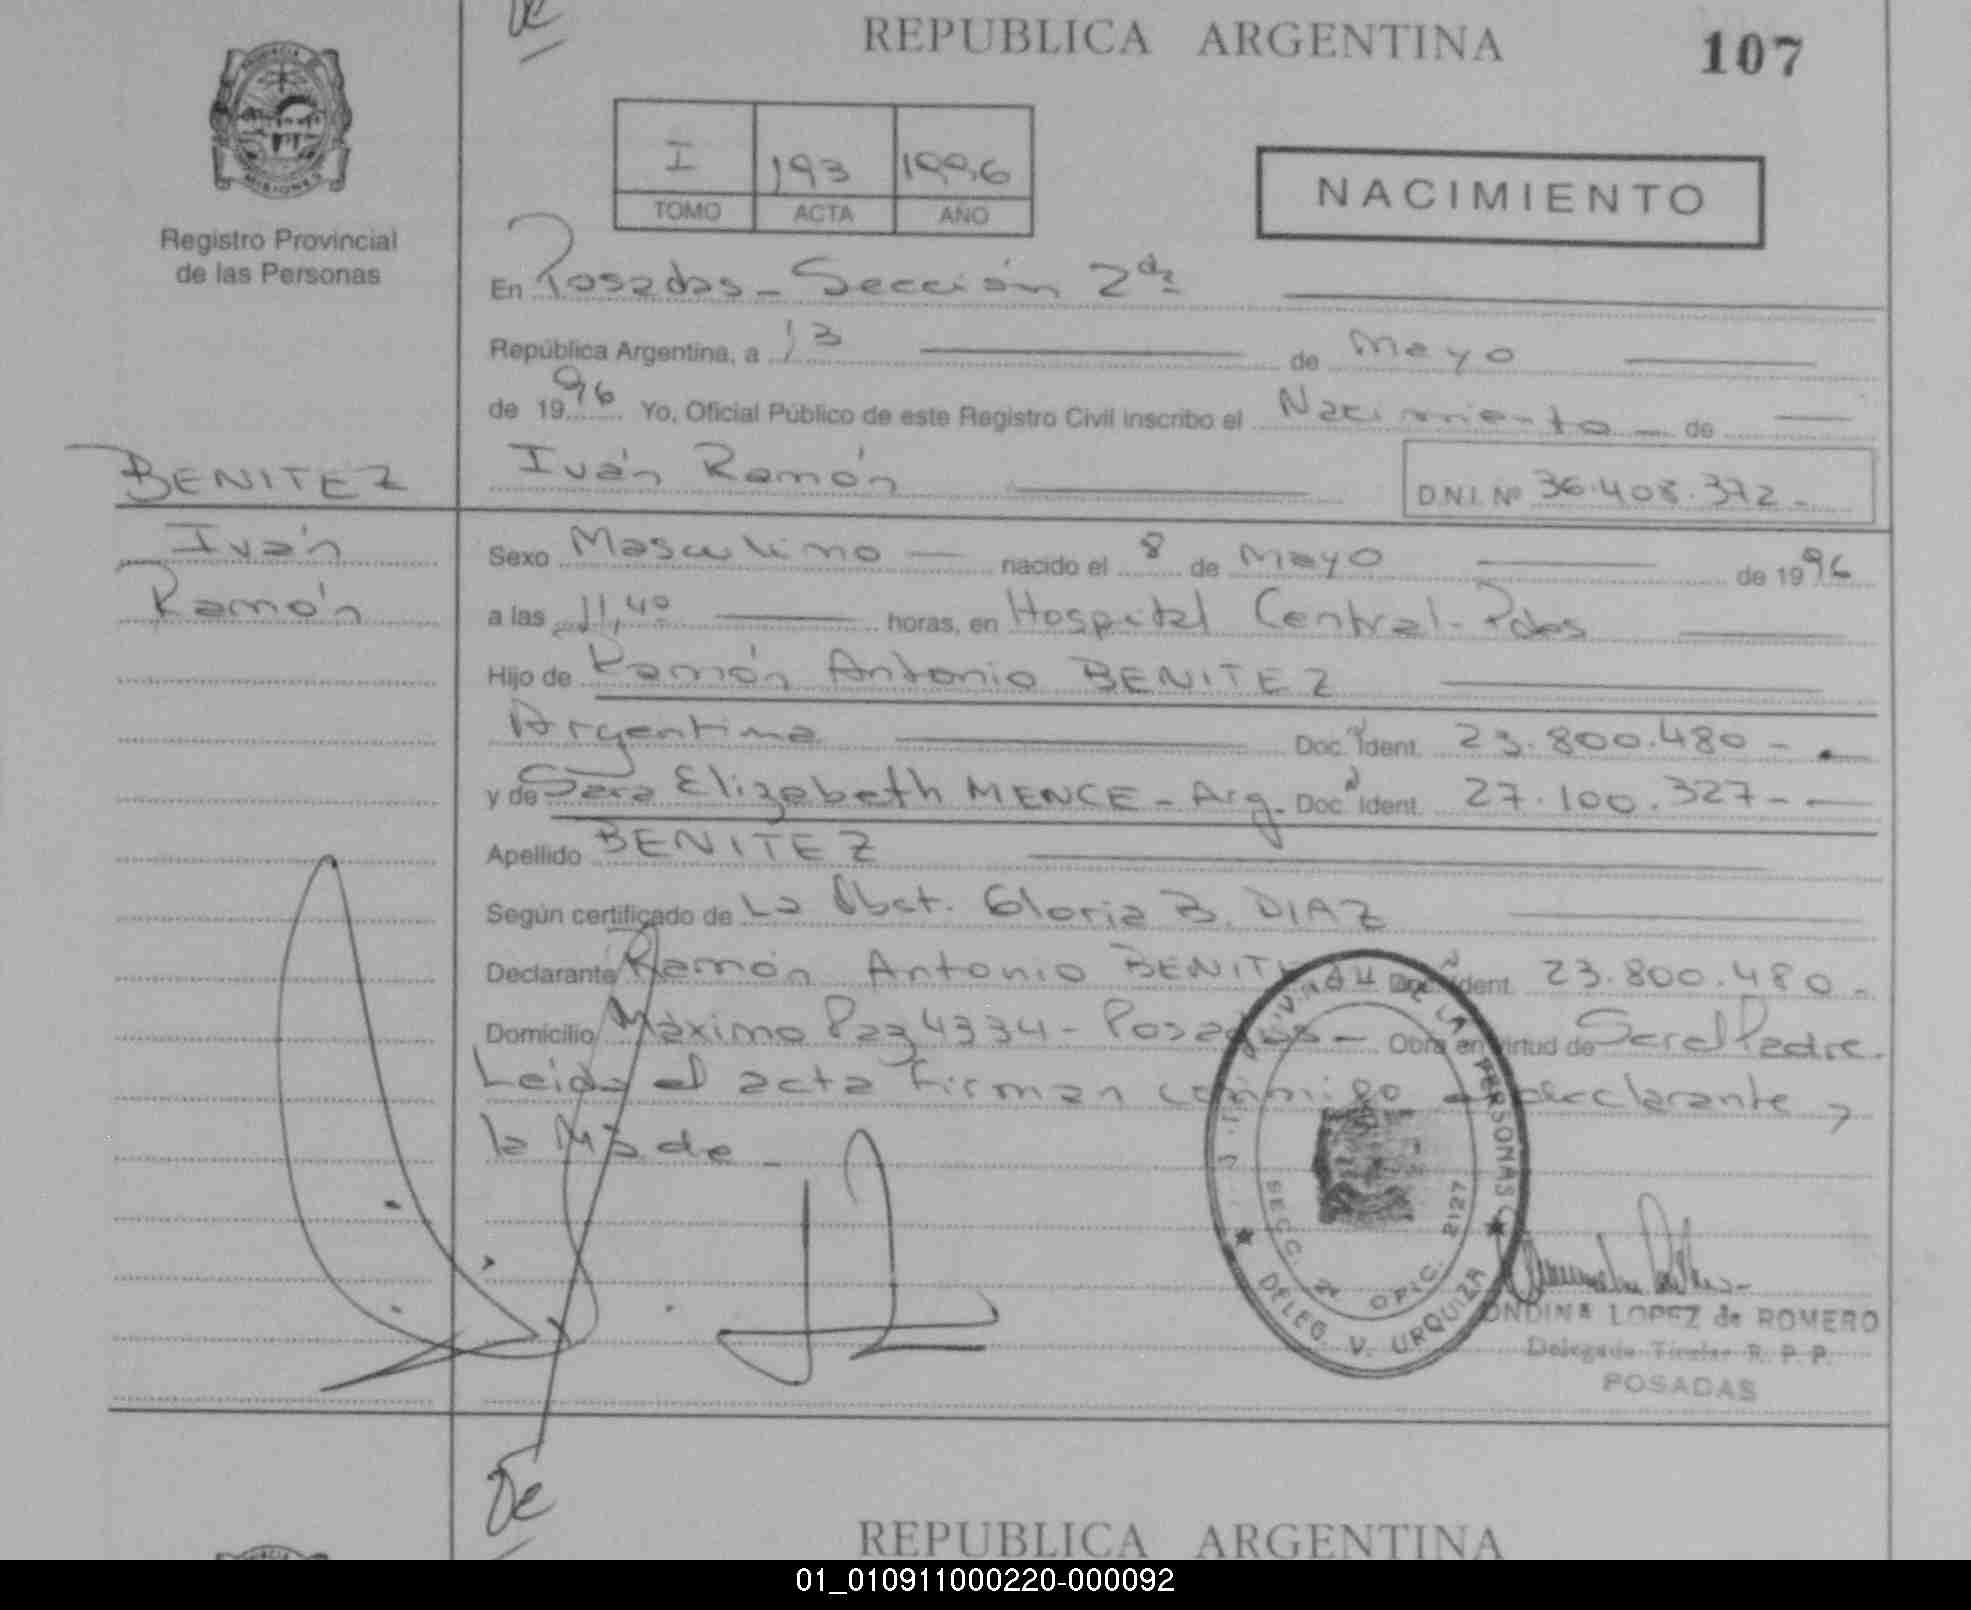 REPUBLICA ARGENTINA
107
MISIONES
Registro Provincial
de las Personas
I 193 1996
TOMO ACTA AÑO
NACIMIENTO
En Posadas - Sección 2da
República Argentina, a 13 de Mayo
de 1996 Yo, Oficial Público de este Registro Civil inscribo el Nacimiento - de
BENITEZ
Iván Ramón
D.N.I. Nº 36.408.372.-
Iván
Ramón
Sexo Masculino nacido el 8 de Mayo de 1996
a las 11,40 horas, en Hospital Central - Pdas
Hijo de Ramón Antonio BENITEZ
Argentina Doc. Ident. 23.800.480 -
y de Sara Elizabeth MENCE - Arg. Doc. Ident. 27.100.327 -
Apellido BENITEZ
Según certificado de La Obst. Gloria B. DIAZ
Declarante Ramón Antonio BENITEZ Doc. Ident. 23.800.480.
Domicilio Máximo Paz 4334 - Posadas - Obra en virtud de Ser el Padre.
Leida el acta firman conmigo el declarante y
la Madre -
DE LA PERSONAS
SECC. 2a OFIC. 2127
DELEG. V. URQUIZA
ONDINA LOPEZ de ROMERO
Delegado Titular R. P. P.
POSADAS
REPUBLICA ARGENTINA
01_010911000220-000092